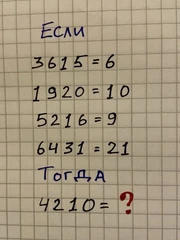 Если
3615=6
1920=10
5216=9
6431=21
Тогда
4210=?